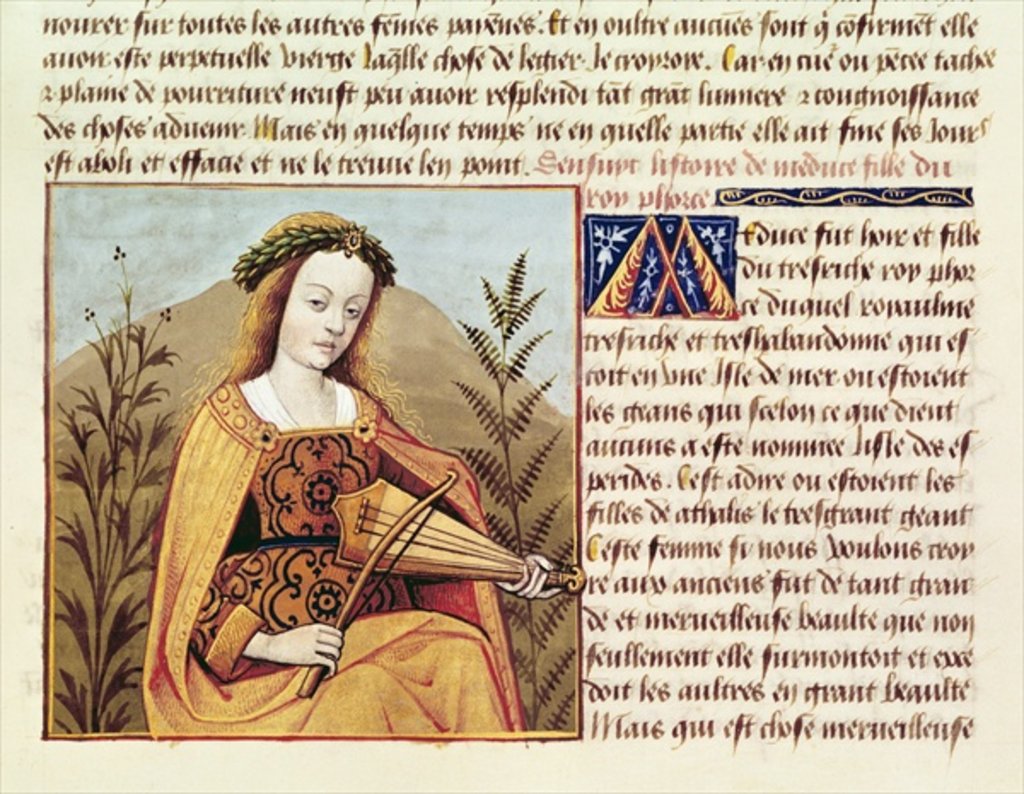 nourer sur toutes les autres fẽmes payẽnes. Et en oultre aucũes sont q̃ cõferment elle
auoir este perpetuelle vierge laq̃lle chose de legier Je croyroye. Car en cuẽ ou pẽcee tachee
⁊ plaine de pourriture neust peu auoir resplendi tãt grãt lumiere ⁊ congnoissance
des choses aduenir. Mais en quelque temps ne en quelle partie elle ait finé ses Jours
est aboli et effacie et ne le treuue len point. Sensuyt listoire de meduce fille du
roy phorce
Meduce fut hoir et fille
du tresriche roy phor
ce duquel royaulme
tresriche et treshabandonne qui es
toit en vne Isle de mer ou estoient
les geans qui scelon ce que dient
aucuns a este nommee lisle des es
perides. Cest adire ou estoient les
filles de athalis le tresgrant geant
Ceste femme si nous voulons croy
re aux anciens fut de tant gran
de et merueilleuse beaulte que non
seullement elle surmontoit et exce
doit les aultres en grant beaulte
Mais qui est chose merueilleuse